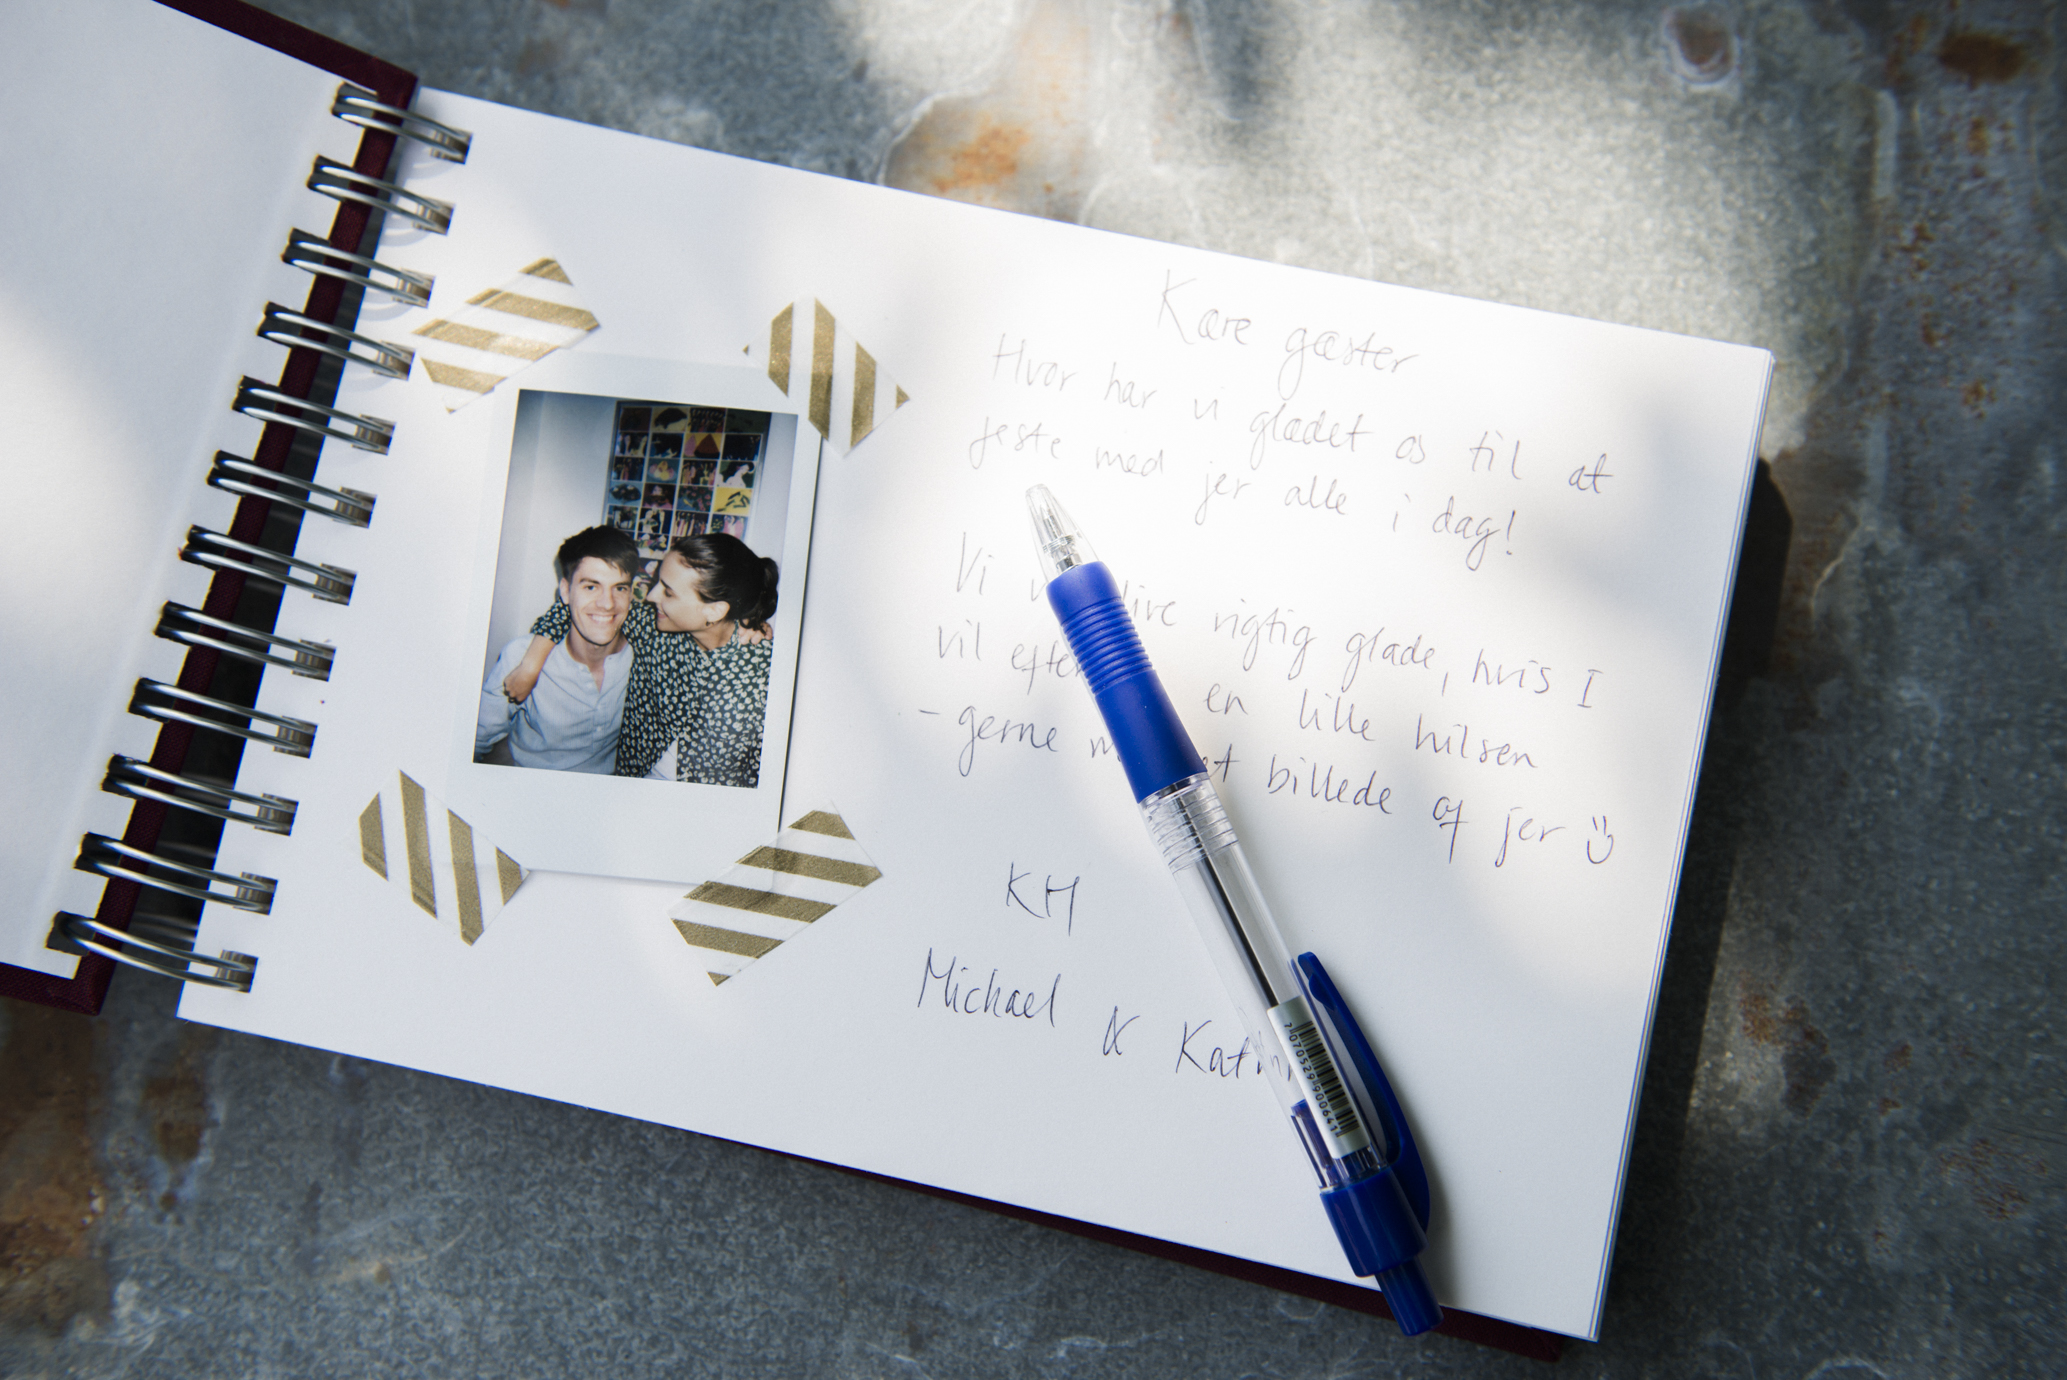 Kære gæster
Hvor har vi glædet os til at
feste med jer alle i dag!
Vi live rigtig glade, hvis I
vil efte en lille hilsen
- gerne m et billede af jer
KH
Michael & Kat
7 070529 900641